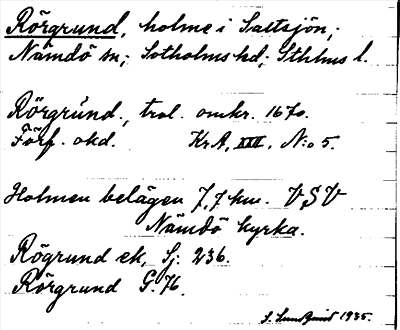 Rörgrund, holme i Saltsjön;
Nämdö sn; Sotholms hd; Sthlms l.
Rörgrund., trol. omkr. 1670.
Förf. okd. KrA, XIII, N:o 5.
Holmen belägen 7,7 km. VSV
Nämdö kyrka.
Rögrund ek, Sj. 236.
Rörgrund G. 76.
S. Lundquist 1935.